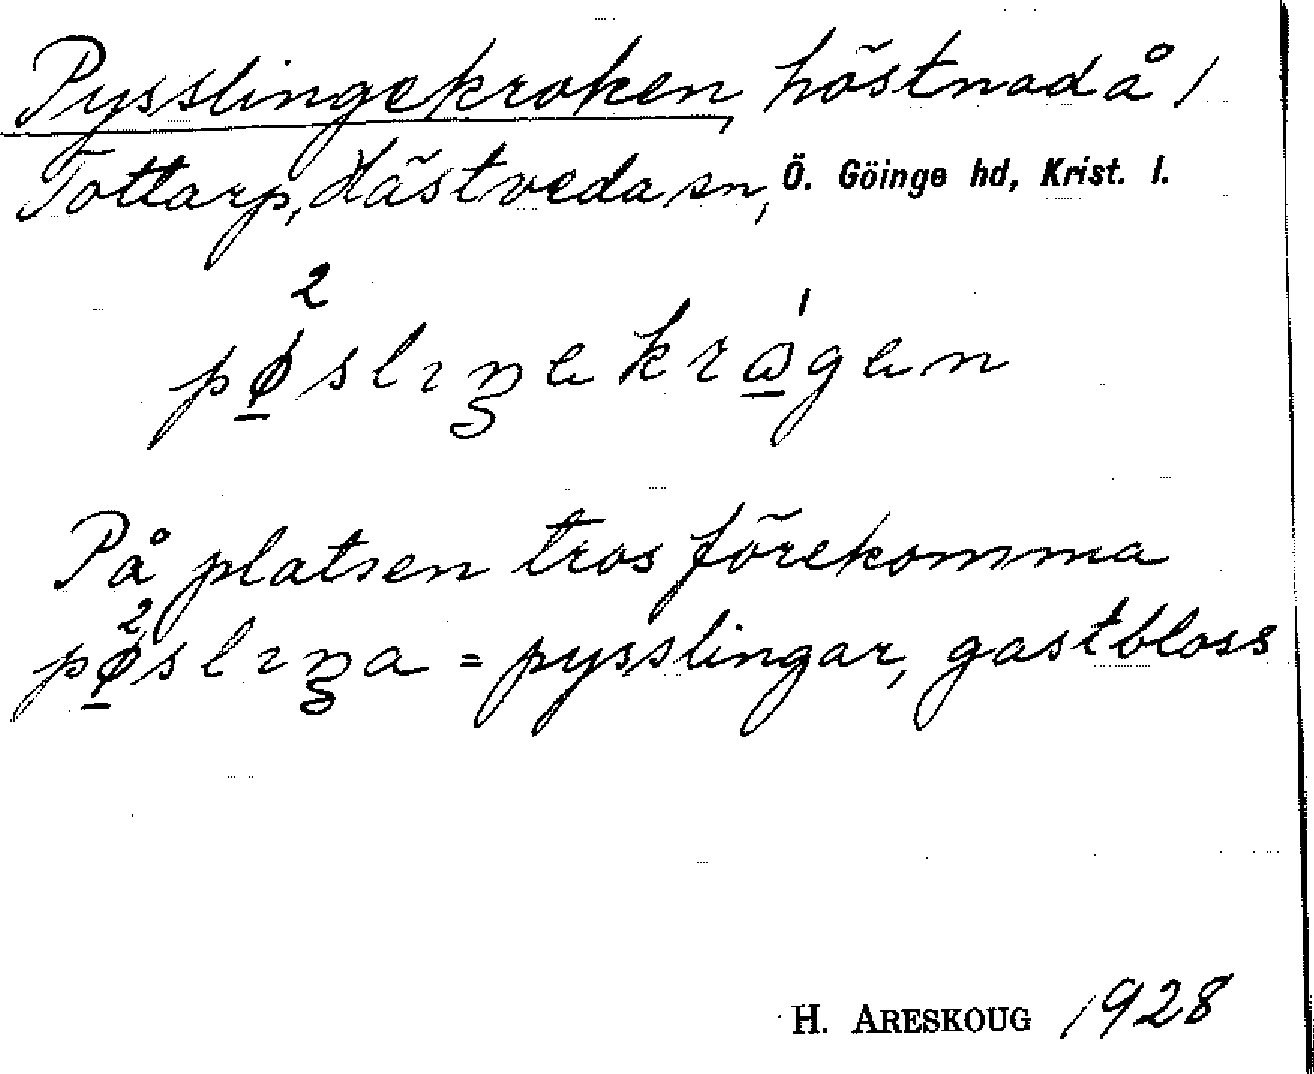 Pysslingekroken, höstnad å /
Tottarp, Hästveda sn, Ö. Göinge hd, Krist. l.
På platsen tros förekomma
= pysslingar, gastbloss
H. ARESKOUG 1928